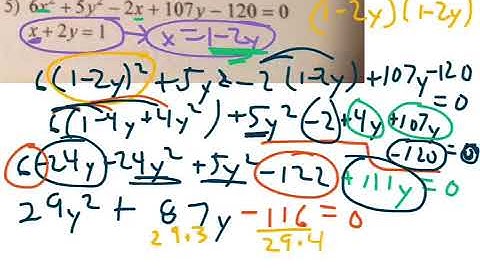 5) 6x² + 5y² - 2x + 107y - 120 = 0
(1-2y)(1-2y)
x + 2y = 1 → x = 1-2y
6(1-2y)² + 5y² - 2(1-2y) + 107y - 120 = 0
6(1-4y+4y²) + 5y² - 2 + 4y + 107y - 120 = 0
6 - 24y - 24y² + 5y² - 122 + 111y = 0
29y² + 87y - 116 = 0
29·3 29·4